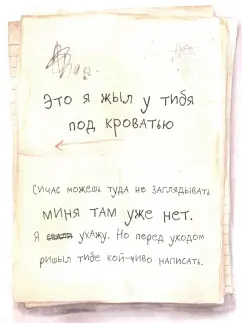 Это я жыл у тибя
под кроватью
Сичас можешь туда не заглядывать
миня там уже нет.
Я ухажу. Но перед уходом
ришыл тибе кой-чиво написать.